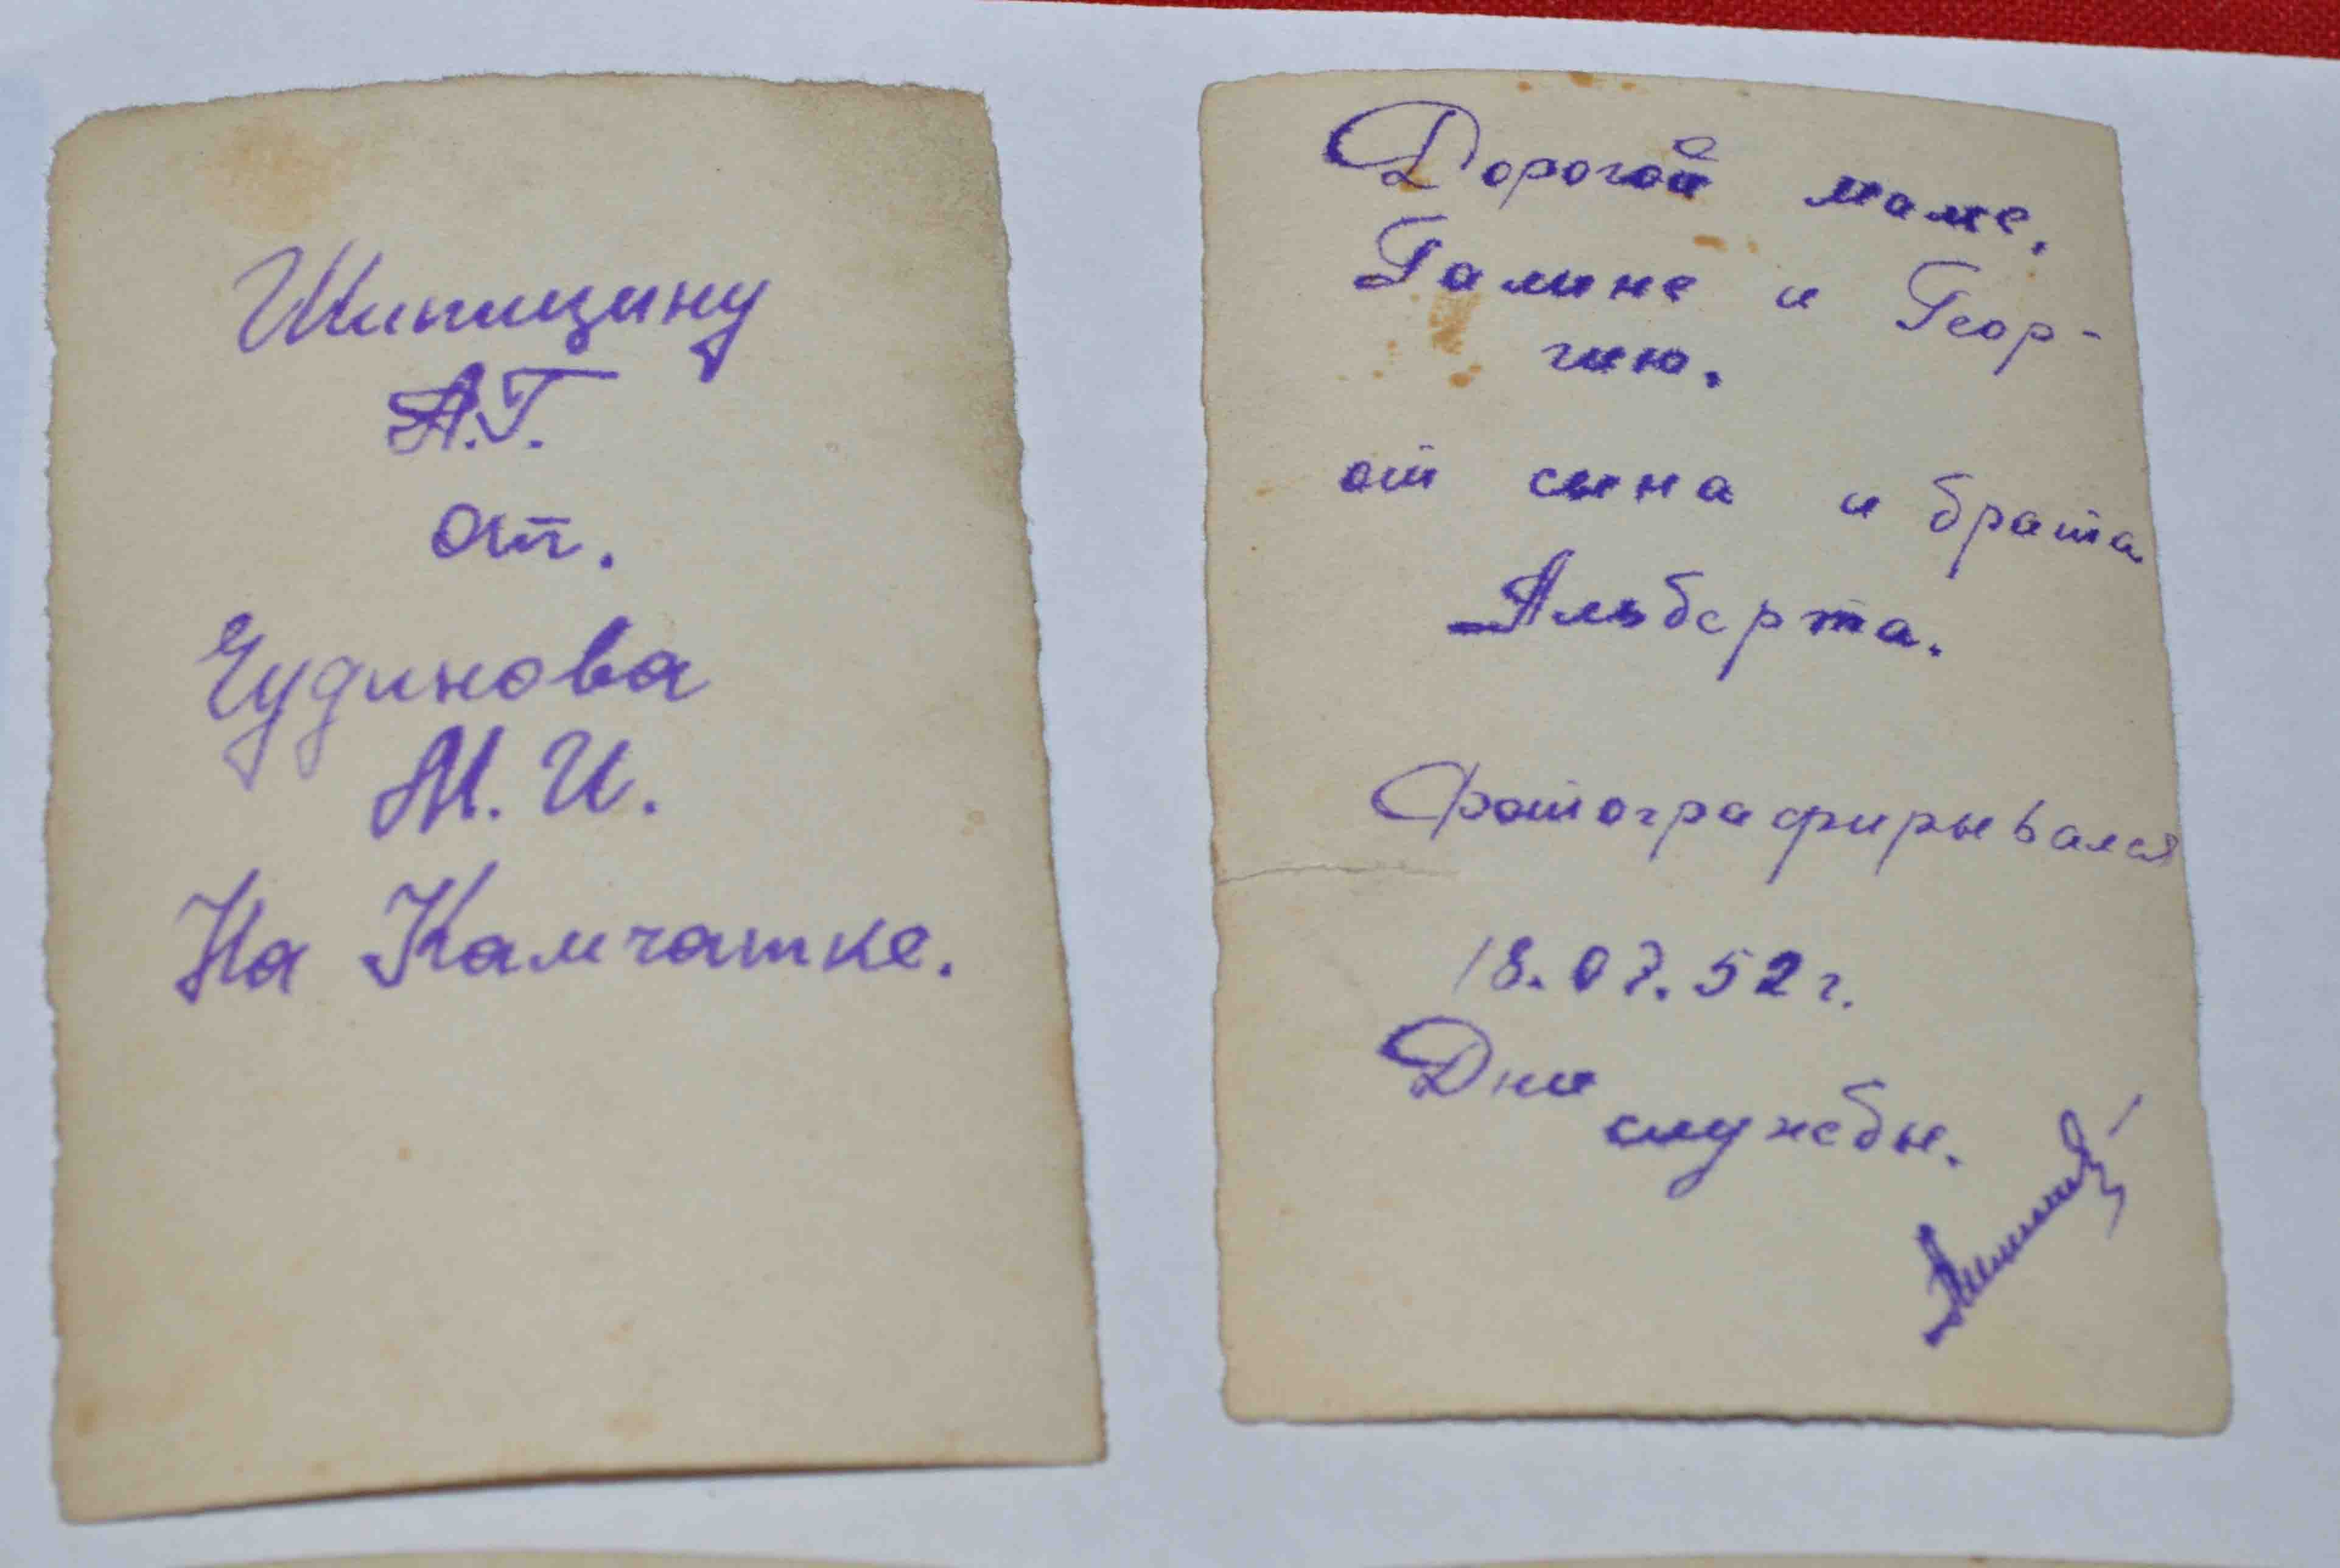 Шипицину
А.Г.
от.
Чудинова
М. И.
На Камчатке.
Дорогой маме.
Галине и Геор-
гию.
от сына и брата
Альберта.
Фотографирывался
18.07.52 г.
Дни
службы.